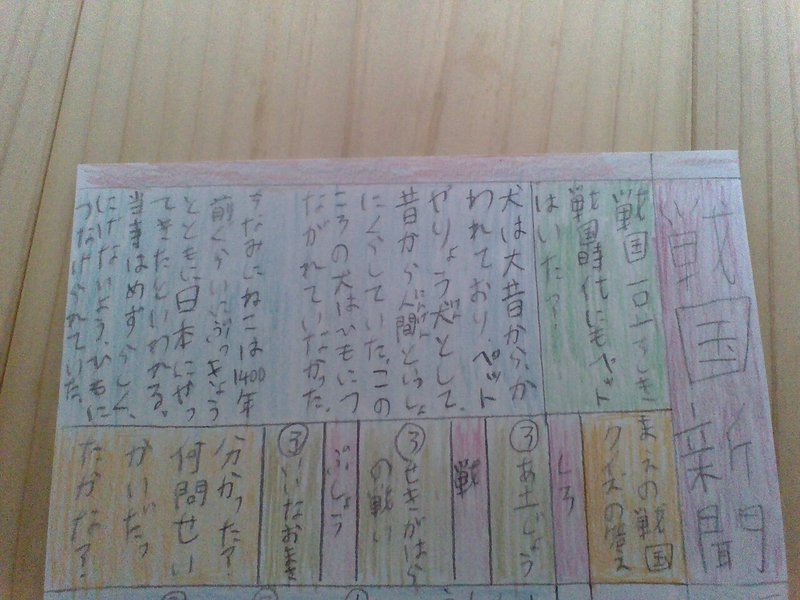 戦国新聞
戦国
戦国時代にもペット
はいた?
犬は大昔から、か
われており、ペット
やりょう犬として
昔から人間といっしょ
にくらしていた。この
ころの犬はひもにつ
ながれていなかった。
ちなみにねこは1400年
前くらいにぶっきょう
とともに日本にやっ
てきたといわれる。
当時はめずらしく、
にげないよう、ひもに
つなげられていた。
まえの戦国
クイズの答え
しろ
③あ土じょう
戦
③せきがはら
の戦い
ぶしょう
③いいなおまさ
分かった?
何問せい
かいだっ
たかな?